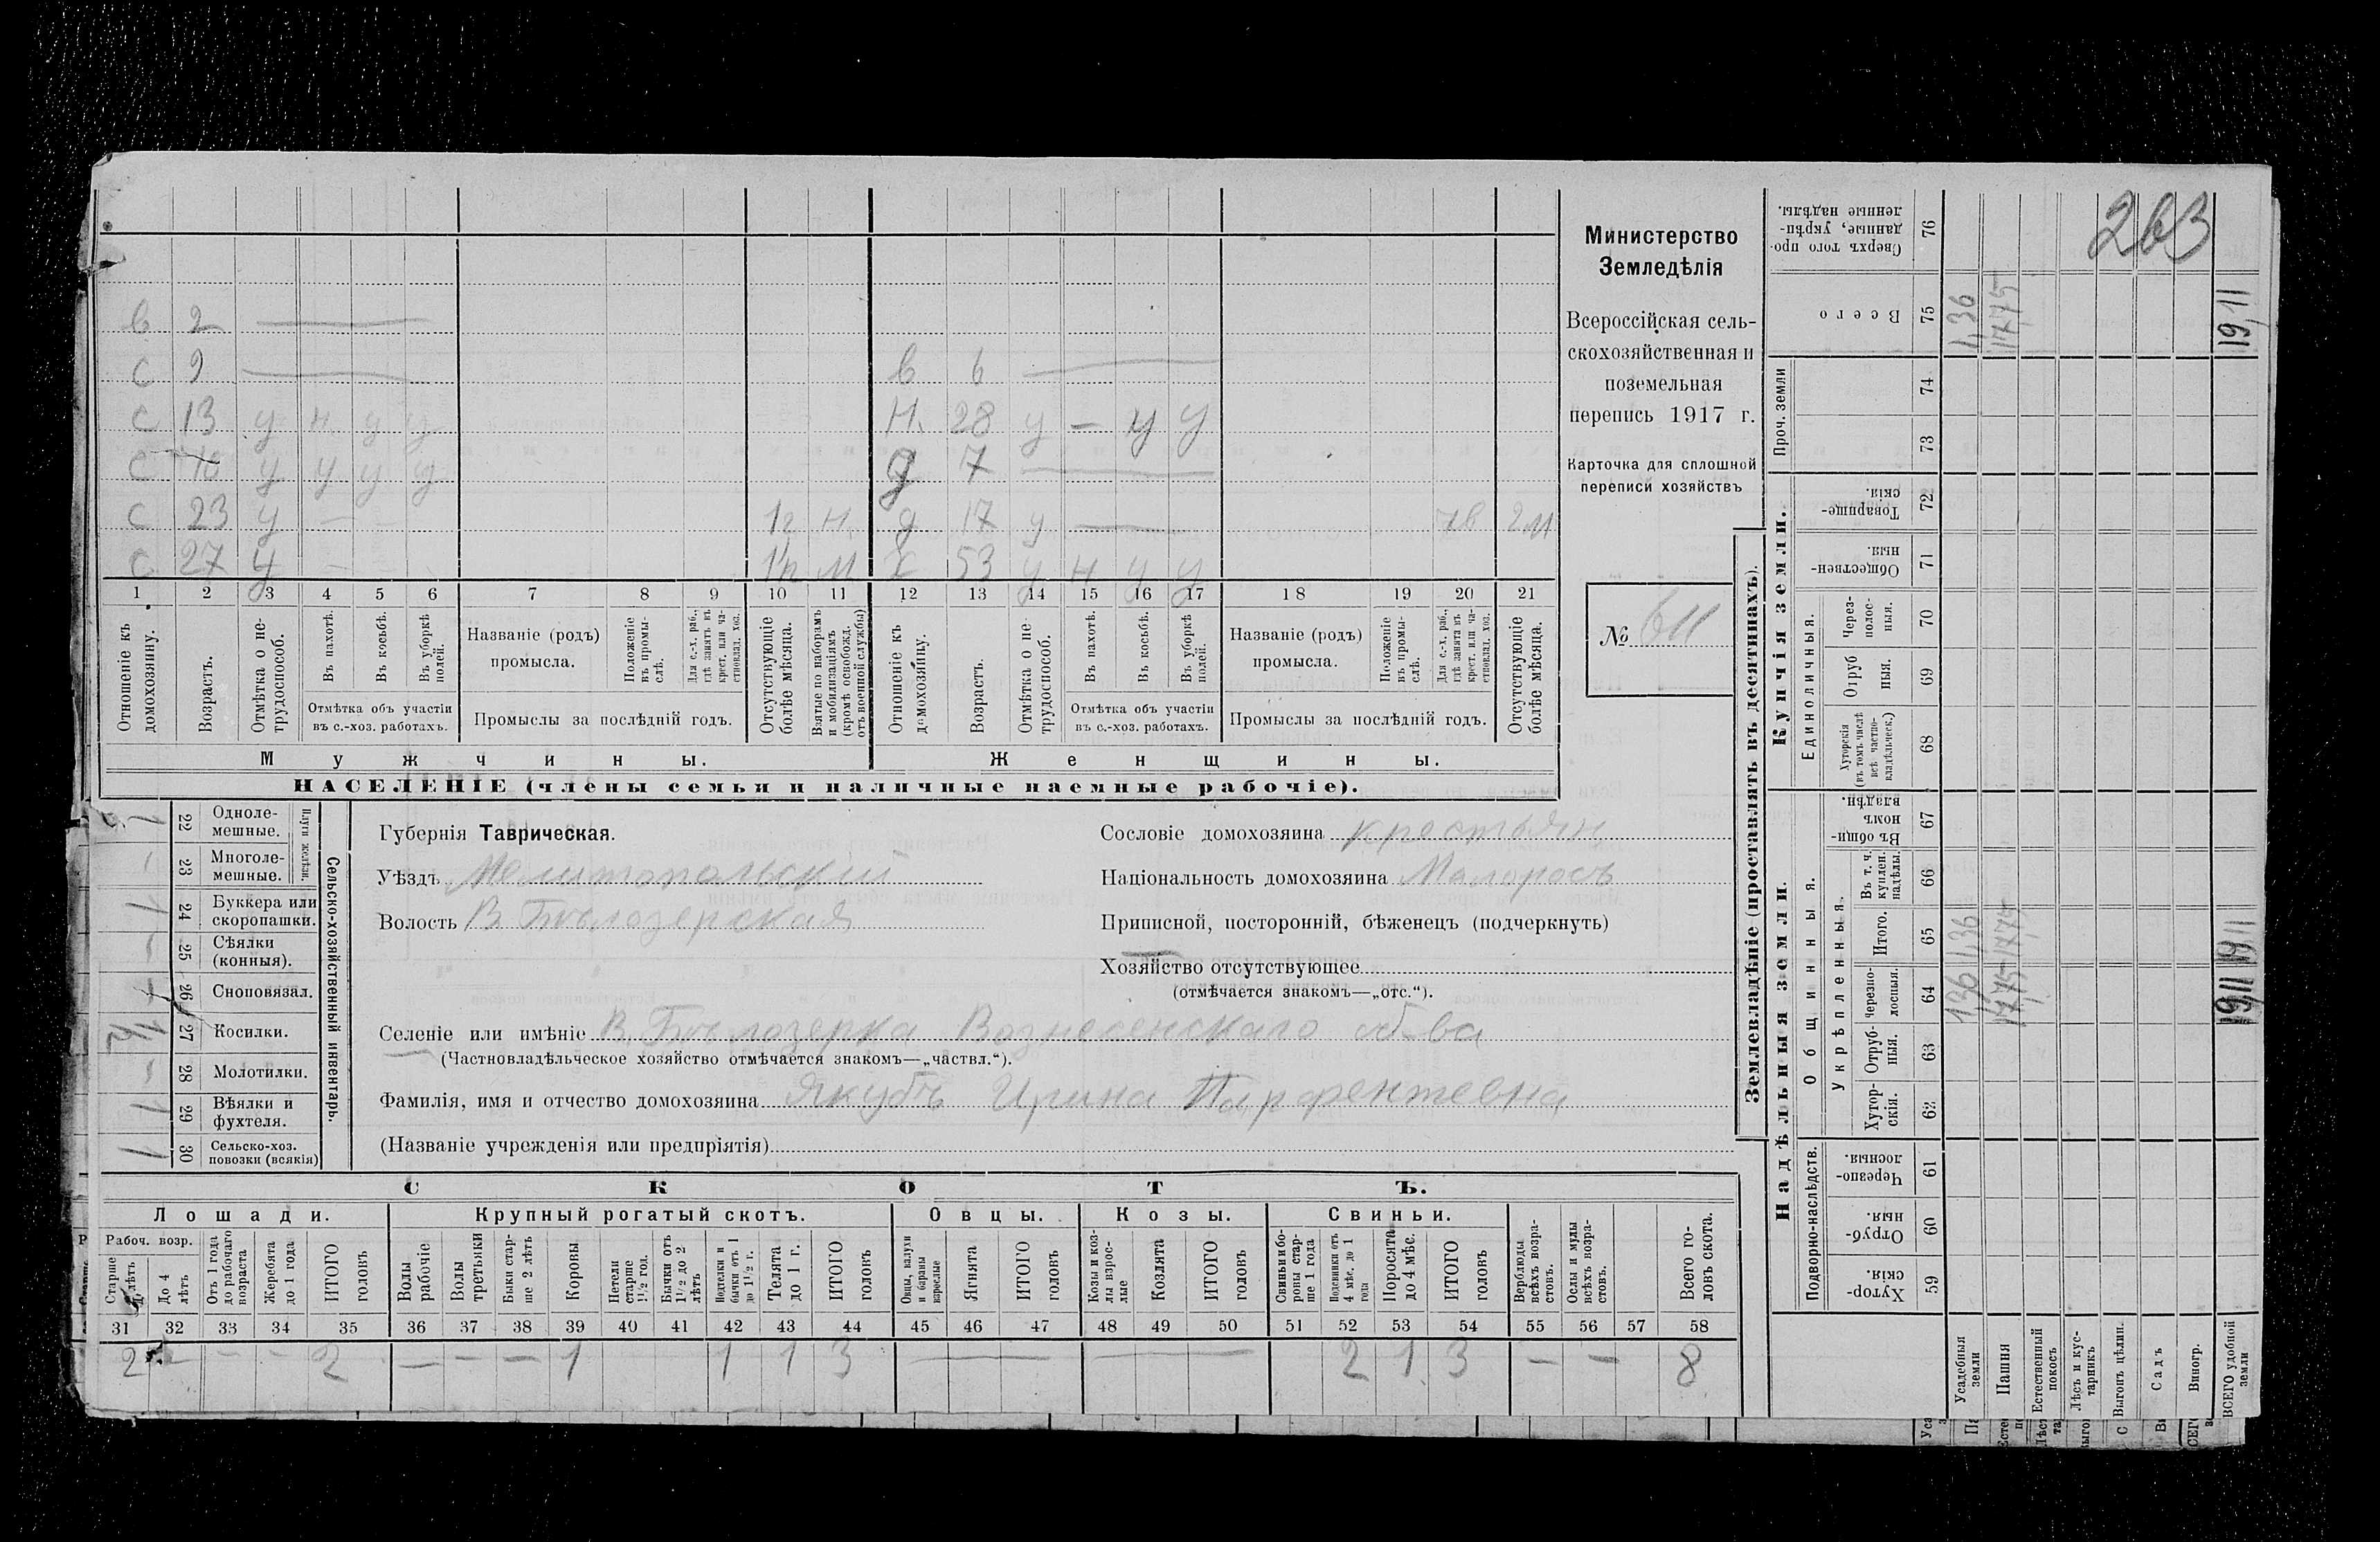 263
Министерство
Земледѣлія
Всероссійская сель-
скохозяйственная и
поземельная
перепись 1917 г.
Карточка для сплошной
переписи хозяйствъ
№ 611
в 2
с 9 в 6
с 13 у н у у Н. 28 у — у у
с 16 у у у у д 7
с 23 у д 17 у
с 27 у х 53 у н у у
1 2 3 4 5 6 7 8 9 10 11 12 13 14 15 16 17 18 19 20 21
Отношеніе къ домохозяину.
Возрастъ.
Отмѣтка о не-трудоспособ.
Въ пахотѣ.
Въ косьбѣ.
Въ уборкѣ полей.
Отмѣтка объ участіи
въ с.-хоз. работахъ.
Названіе (родъ)
промысла.
Положеніе въ промы-слѣ.
Для с.-х. раб., гдѣ занятъ въ крест. или ча-стновлад. хоз.
Промыслы за послѣдній годъ.
Отсутствующіе болѣе мѣсяца.
Взятые по наборамъ и мобилизаціямъ (кромѣ освобожд. отъ военной службы)
Отношеніе къ домохозяину.
Возрастъ.
Отмѣтка о не-трудоспособ.
Въ пахотѣ.
Въ косьбѣ.
Въ уборкѣ полей.
Отмѣтка объ участіи
въ с.-хоз. работахъ.
Названіе (родъ)
промысла.
Положеніе въ промы-слѣ.
Для с.-х. раб., гдѣ занята въ крест. или ча-стновлад. хоз.
Промыслы за послѣдній годъ.
Отсутствующіе болѣе мѣсяца.
Мужчины.
Женщины.
НАСЕЛЕНІЕ (члены семьи и наличные наемные рабочіе).
Сельско-хозяйственный инвентарь.
Плуги желѣзн.
22 Одноле-мешные.
23 Многоле-мешные.
24 Буккера или скоропашки.
25 Сѣялки (конныя).
26 Сноповязал.
27 Косилки.
28 Молотилки.
29 Вѣялки и фухтеля.
30 Сельско-хоз. повозки (всякія)
Губернія Таврическая.
Уѣздъ Мелитопольскій
Волость В. Бѣлозерская
Сословіе домохозяина крестьян
Національность домохозяина Малоросъ
Приписной, посторонній, бѣженецъ (подчеркнуть)
Хозяйство отсутствующее
(отмѣчается знакомъ—„отс.“).
Селеніе или имѣніе В. Бѣлозерка Вознесенскаго об-ва
(Частновладѣльческое хозяйство отмѣчается знакомъ—„частвл.“).
Фамилія, имя и отчество домохозяина Якубъ Ирина Парфентевна
(Названіе учрежденія или предпріятія)
СКОТЪ.
Лошади. Крупный рогатый скотъ. Овцы. Козы. Свиньи.
Рабоч. возр.
Старше 4 лѣтъ
До 4 лѣтъ
Отъ 1 года до рабочаго возраста
Жеребята до 1 года
ИТОГО головъ
Волы рабочіе
Волы третьяки
Быки стар-ше 2 лѣтъ
Коровы
Нетели старше 1½ год.
Бычки отъ 1½ до 2 лѣтъ
Подтелки и бычки отъ 1 до 1½ г.
Телята до 1 г.
ИТОГО головъ
Овцы, валухи и бараны взрослые
Ягнята
ИТОГО головъ
Козы и коз-лы взрос-лые
Козлята
ИТОГО головъ
Свиньи и бо-ровы стар-ше 1 года
Подсвинки отъ 4 мѣс. до 1 года
Поросята до 4 мѣс.
ИТОГО головъ
Верблюды всѣхъ возра-стовъ.
Ослы и мулы всѣхъ возра-стовъ.
Всего го-ловъ скота.
31 32 33 34 35 36 37 38 39 40 41 42 43 44 45 46 47 48 49 50 51 52 53 54 55 56 57 58
2 — — — 2 — — — 1 1 1 3 — — 2 1 3 — — 8
Землевладѣніе (проставлять въ десятинахъ).
Надѣльныя земли.
Купчія земли.
Проч. земли
Подворно-наслѣдств.
Общинныя.
Укрѣпленныя.
Единоличныя.
Хутор-скія. 59
Отруб-ныя. 60
Черезпо-лосныя. 61
Хутор-скія. 62
Отруб-ныя. 63
Черезпо-лосныя. 64
Итого. 65
Въ т. ч. куплен. надѣлы. 66
Въ общин-номъ владѣн. 67
Хуторскія (въ томъ числѣ всѣ частно-владѣльческ.) 68
Отруб ныя. 69
Через-полос-ныя. 70
Обществен-ныя. 71
Товарище-скія. 72
73
74
Всего 75
Сверхъ того про-данные, укрѣп-ленные надѣлы. 76
Усадебныя земли 1,36 1,36 1,36
Пашня 17,75 17,75 17,75
Естественный покосъ
Лѣсъ и кус-тарникъ
Выгонъ цѣлин.
Садъ
Виногр.
ВСЕГО удобной земли 19,11 19,11 19,11